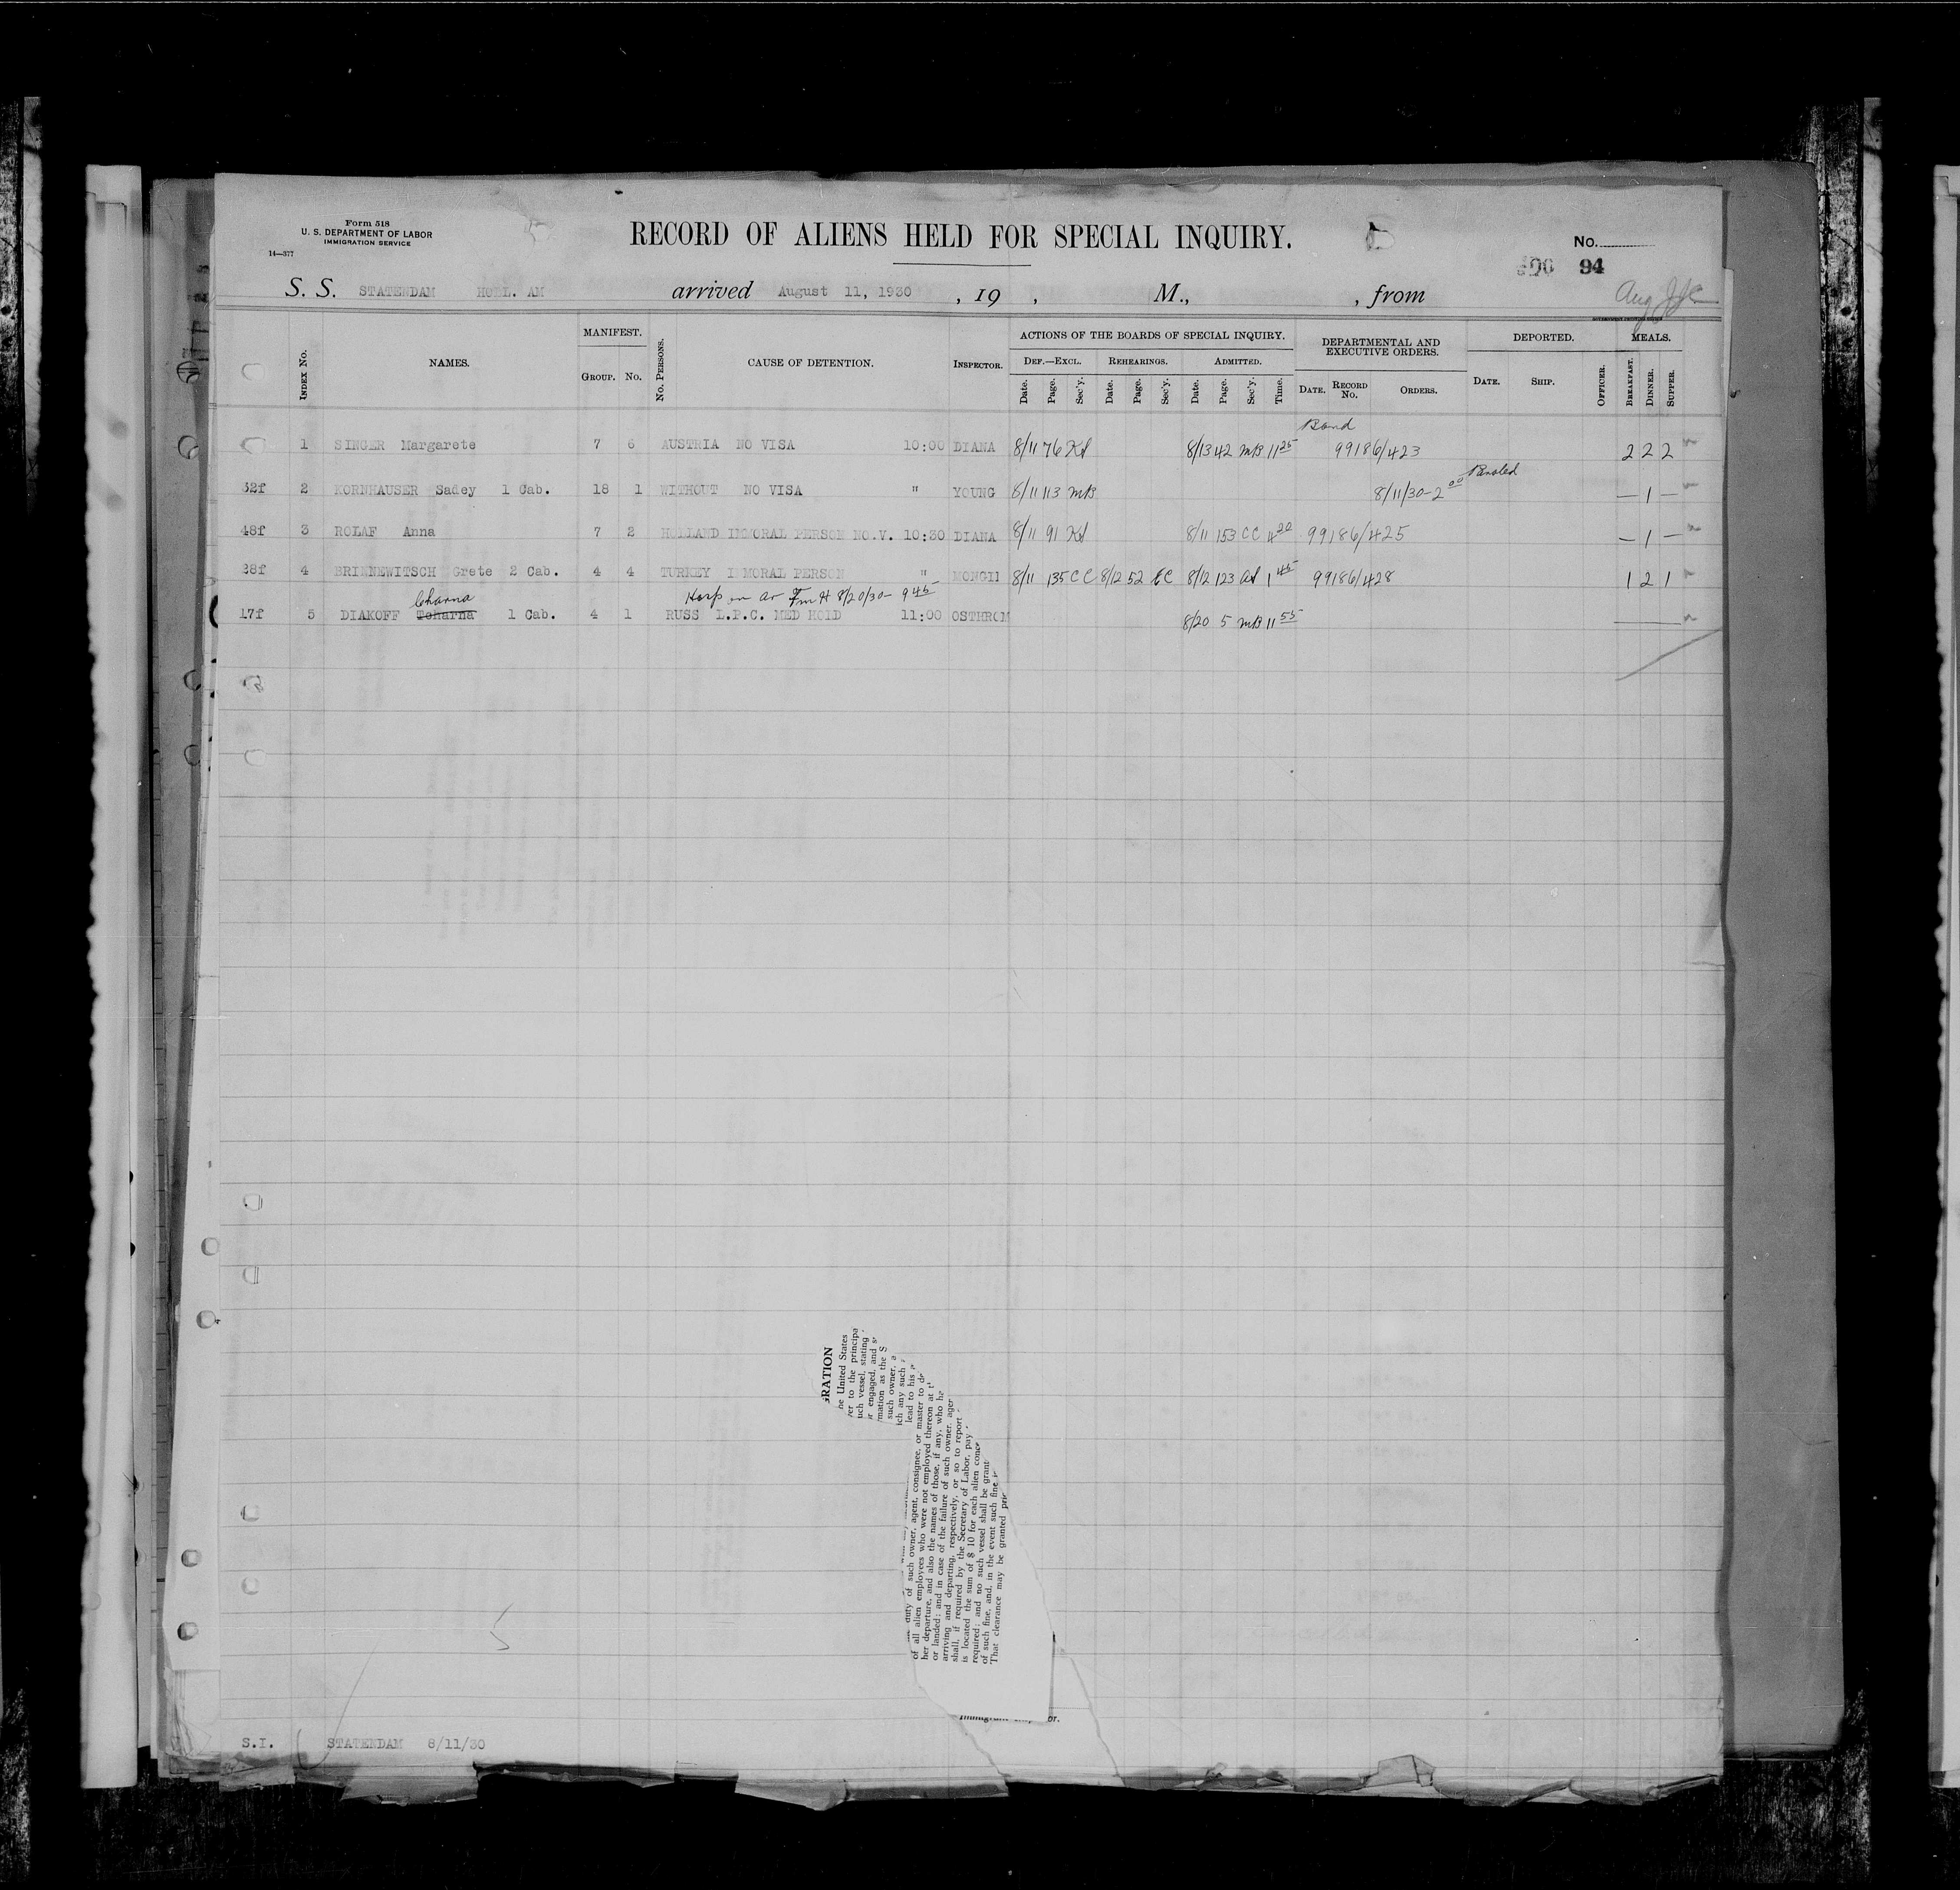 Form 518
U. S. DEPARTMENT OF LABOR
IMMIGRATION SERVICE
14—377
RECORD OF ALIENS HELD FOR SPECIAL INQUIRY.
No.
94
S. S. STATENDAM HOLL. AM arrived August 11, 1930 , 19 , M., , from
INDEX No. NAMES. MANIFEST. GROUP. No. No. PERSONS. CAUSE OF DETENTION. INSPECTOR. ACTIONS OF THE BOARDS OF SPECIAL INQUIRY. DEF.—EXCL. Date. Page. Sec'y. REHEARINGS. Date. Page. Sec'y. ADMITTED. Date. Page. Sec'y. Time. DEPARTMENTAL AND EXECUTIVE ORDERS. DATE. RECORD No. ORDERS. DEPORTED. DATE. SHIP. OFFICER. MEALS. BREAKFAST. DINNER. SUPPER.
Bond
1 SINGER Margarete 7 6 AUSTRIA NO VISA 10:00 DIANA 8/11 76 8/13 42 MB 11 25 99186/423 2 2 2
Paroled
32f 2 KORNHAUSER Sadey 1 Cab. 18 1 WITHOUT NO VISA " YOUNG 8/11 113 MB 8/11/30-2 00 — 1 —
48f 3 ROLAF Anna 7 2 HOLLAND IMMORAL PERSON NO.V. 10:30 DIANA 8/11 91 8/11 153 CC 4 20 99186/425 — 1 —
28f 4 BRINNEWITSCH Grete 2 Cab. 4 4 TURKEY IMMORAL PERSON " MONGII 8/11 135 CC 8/12 52 8/12 123 1 45 99186/428 1 2 1
Charna Hosp on ar Fm H 8/20/30- 9 45
17f 5 DIAKOFF Tcharna 1 Cab. 4 1 RUSS L.P.C. MED HOLD 11:00 OSTHROM 8/20 5 MB 11 55
RATION
he United States
er to the principa
uch vessel, stating
r engaged, and
mation as the S
such owner,
ich any such
lead to his
duty of such owner, agent, consignee, or master to de
of all alien employees who were not employed thereon at t
her departure, and also the names of those, if any, who ha
or landed; and in case of the failure of such owner, ager
arriving and departing, respectively, or so to report
shall, if required by the Secretary of Labor, pay
is located the sum of $ 10 for each alien conce
required; and no such vessel shall be grant
of such fine, and, in the event such fine
That clearance may be granted pri
S.I. STATENDAM 8/11/30